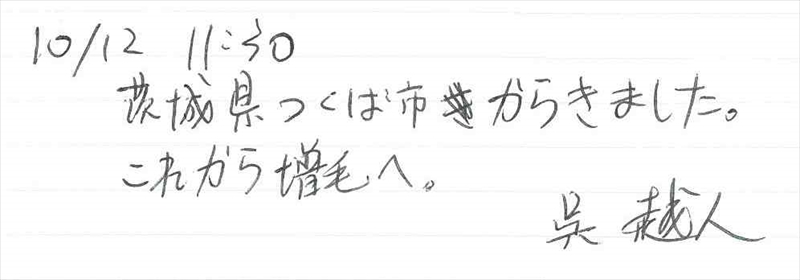 10/12 11:30
茨城県つくば市からきました。
これから増毛へ。
呉 越人